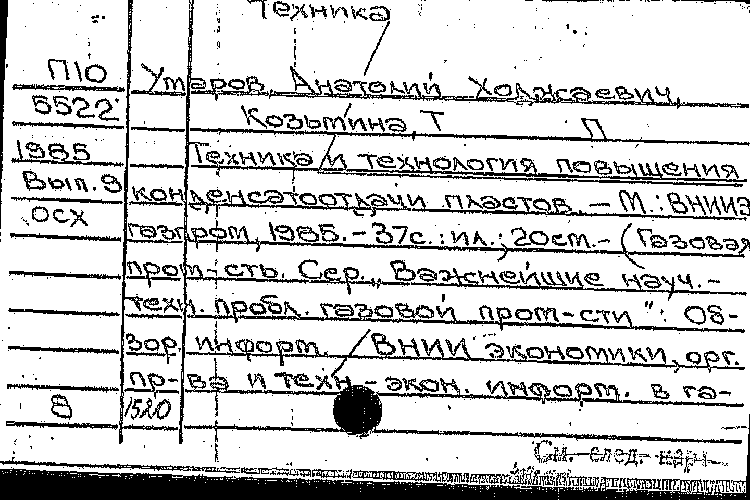 Техника
П10 Умаров, Анатолий Холжаевич,
5522 Козьмина, Т П
1985 Техника и технология повышения
Вып. 9 конденсатоотдачи пластов. - М.: ВНИИЭ
осх газпром, 1985. - 37с.: ил.; 20см. - (Газовая
пром-сть. Сер., Важнейшие науч.-
техн. пробл. газовой пром-сти": Об-
зор. информ. / ВНИИ экономики, орг.
пр-ва и техн.-экон. информ. в га-
8 1520
См. след. карт.